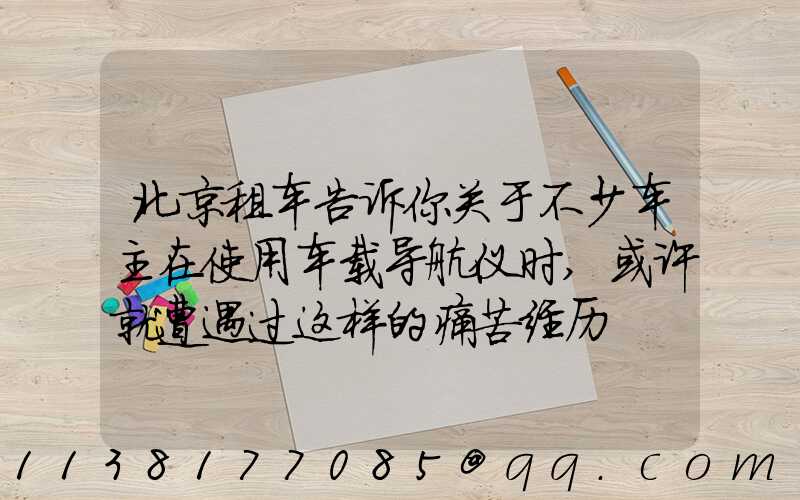 北京租车告诉你关于不少车
主在使用车载导航仪时,或许
就遭遇过这样的痛苦经历
1138177085@qq.com